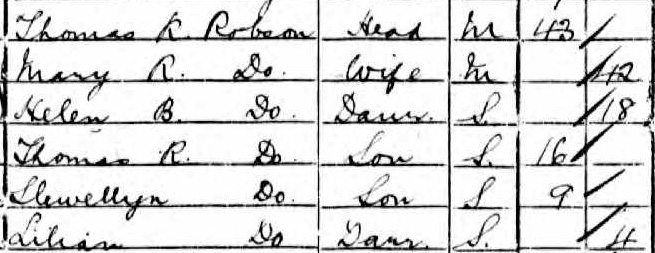 Thomas R. Robson Head M 43
Mary R. Do. Wife M 42
Helen B. Do. Daur. S. 18
Thomas R. Do. Son S. 16
Llewellyn Do. Son S 9
Lilian Do Daur. S. 4